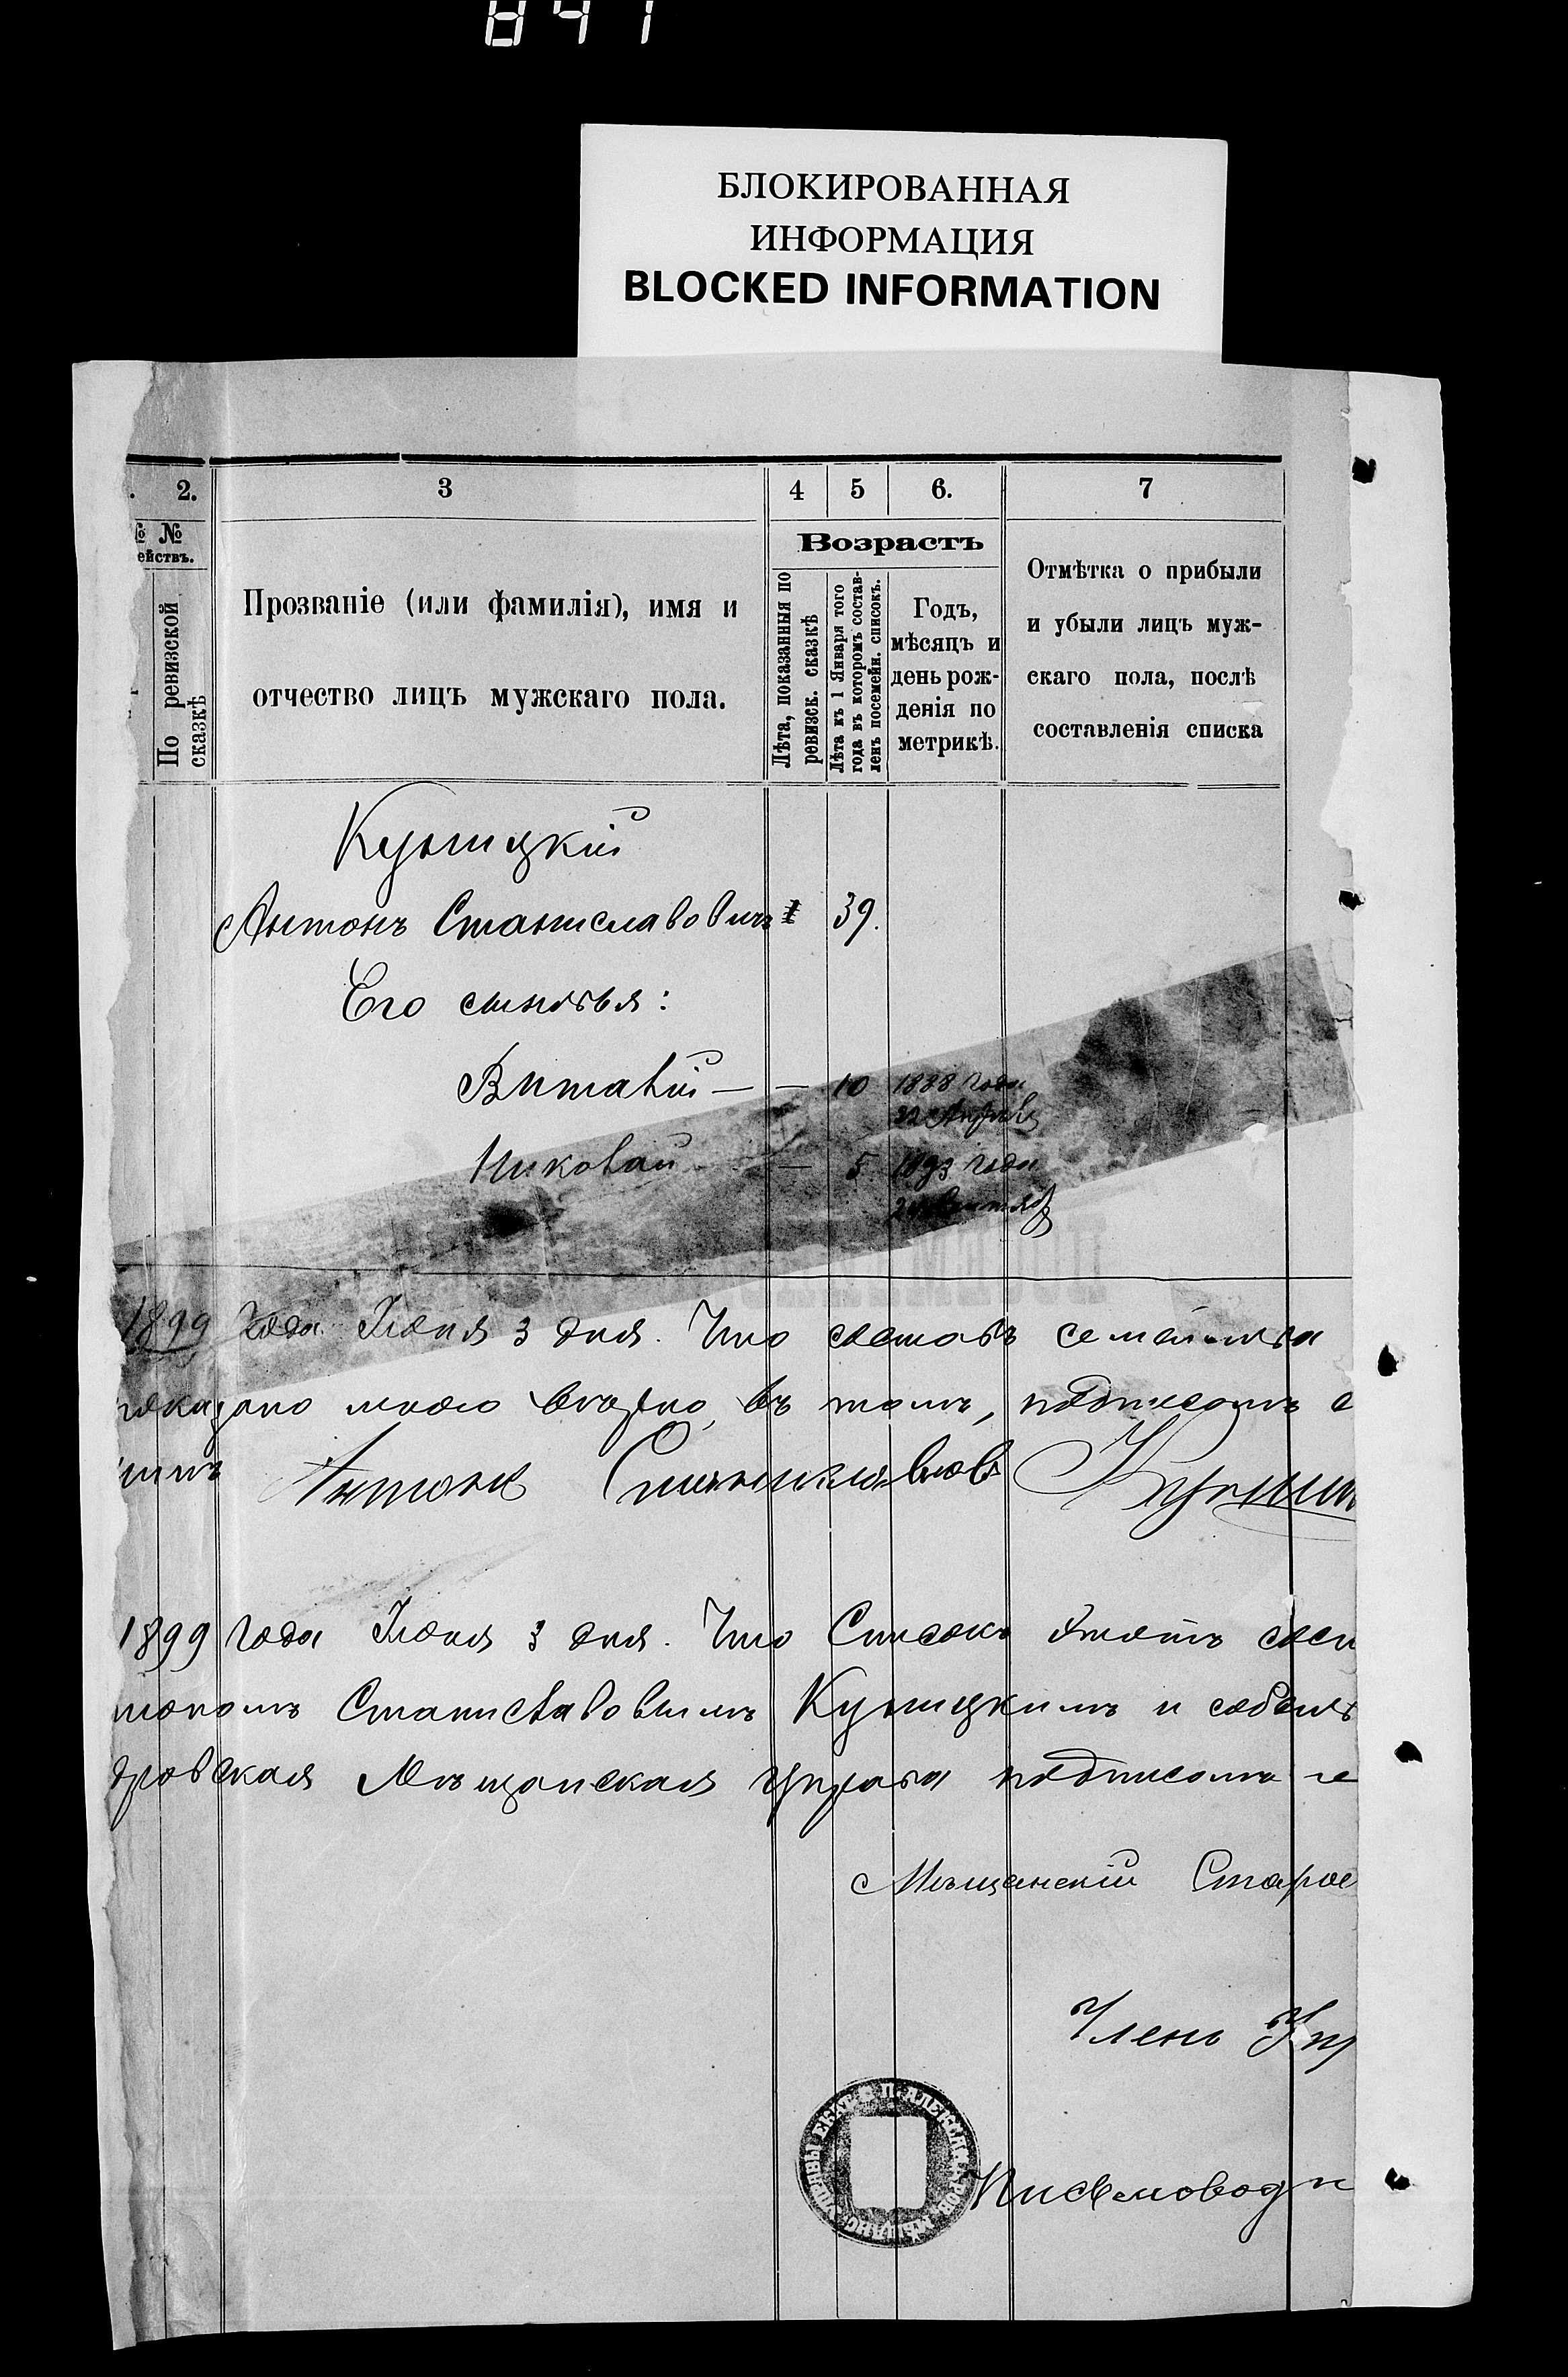 841
БЛОКИРОВАННАЯ
ИНФОРМАЦИЯ
BLOCKED INFORMATION
2. 3 4 5 6. 7
№
ействъ.
По ревизской
сказкѣ
Прозваніе (или фамилія), имя и
отчество лицъ мужскаго пола.
Возрастъ
Лѣта, показанныя по
ревизск. сказкѣ
Лѣта къ 1 Января того
года въ которомъ состав-
ленъ посемейн. список.
Годъ,
мѣсяцъ и
день рож-
денія по
метрикѣ.
Отмѣтка о прибыли
и убыли лицъ муж-
скаго пола, послѣ
составленія списка
Куницкій
Антонъ Станиславовичъ 39.
Его сыновья:
Виталій — — 10 1888 года
22 Апрѣля
Николай — 5 1893 года
Сентяб
1899 года Іюня 3 дня. Что составъ семейства
показано мною вѣрно, въ томъ, подписомъ с
Антонъ Станиславовъ Куниц
1899 года Іюня 3 дня. Что Списокъ этотъ сост
тономъ Станиславовымъ Куницкимъ и
дровская Мѣщанская Управа подписомъ
Мѣщанскій Старос
Членъ Уп
УПРАВЫ ЕКАТЕР. П. АЛЕКСАНДРОВ. МѢЩАНС.
Письмовод